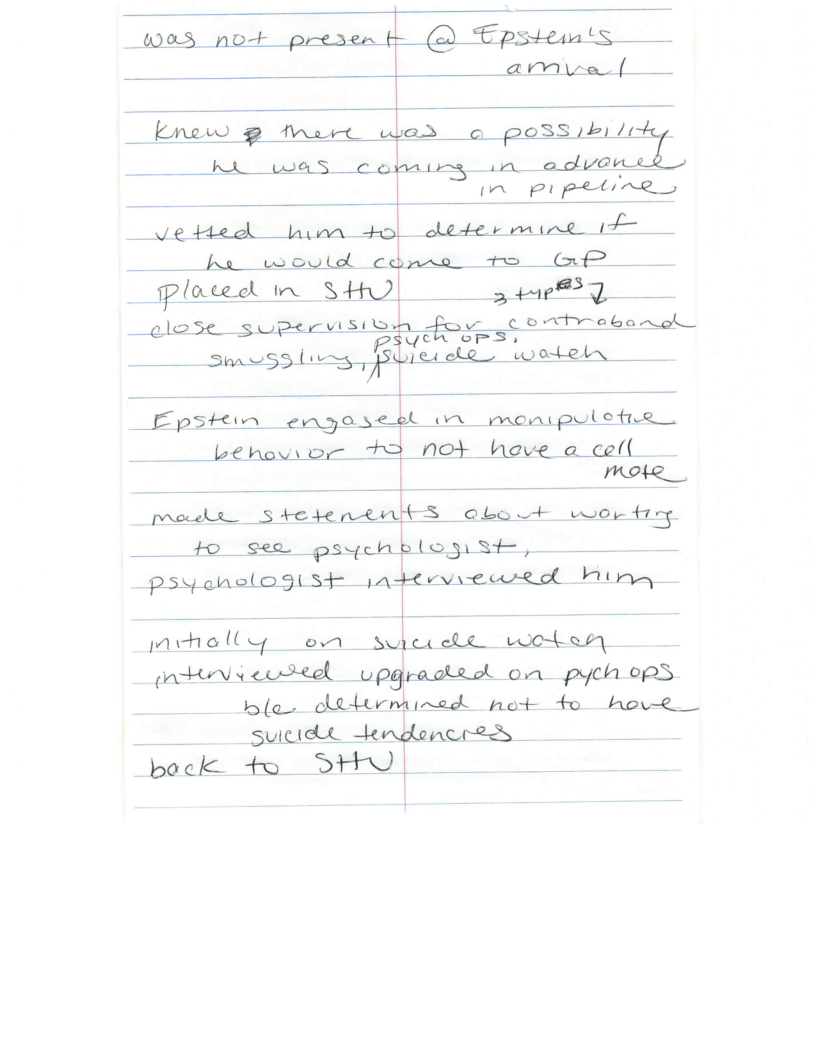 was not present @ Epstein's
arrival
Knew there was a possibility
he was coming in advance
in pipeline
vetted him to determine if
he would come to GP
Placed in SHU 3 types ↓
close supervision for contraband
psych ops,
smuggling, suicide watch
Epstein engaged in manipulative
behavior to not have a cell
mate
made statements about wanting
to see psychologist,
psychologist interviewed him
initially on suicide watch
interviewed upgraded on pych ops
b/c determined not to have
suicide tendencies
back to SHU